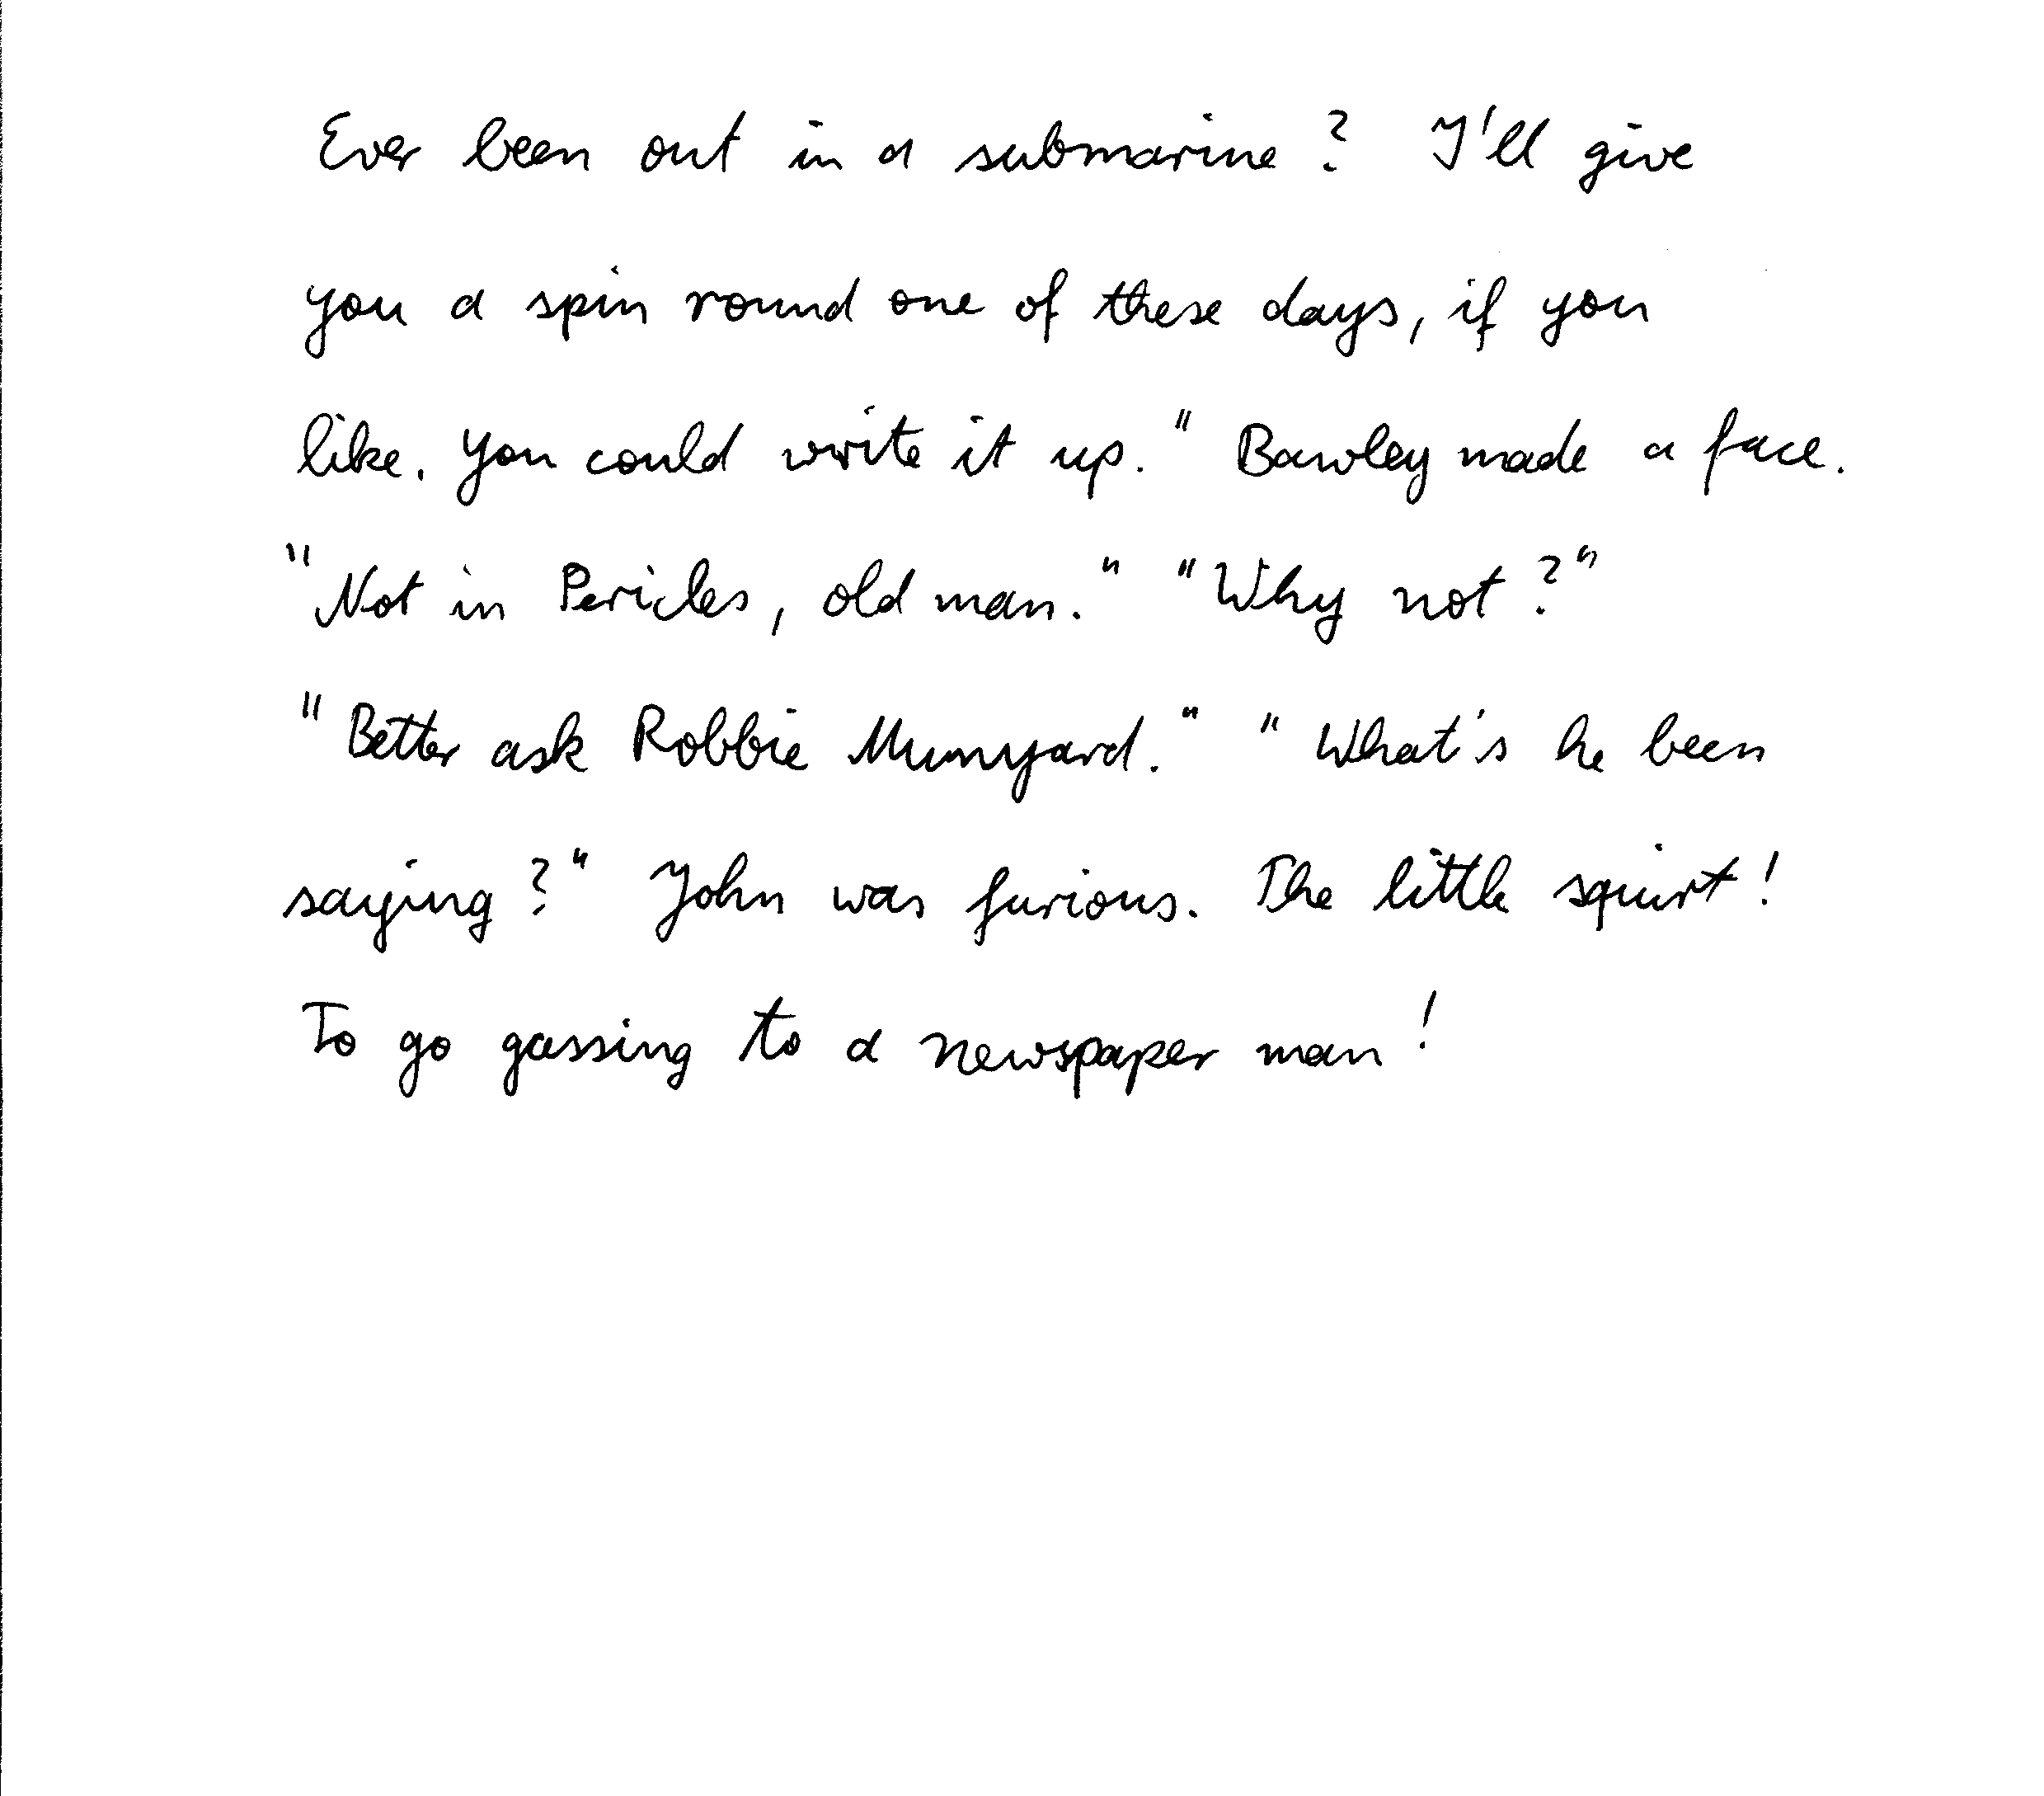 Ever been out in a submarine? I'll give
you a spin round one of these days, if you
like. You could write it up." Bawley made a face.
"Not in Pericles, old man." "Why not?"
"Better ask Robbie Munyard." "What's he been
saying?" John was furious. The little squirt!
To go gassing to a newspaper man!